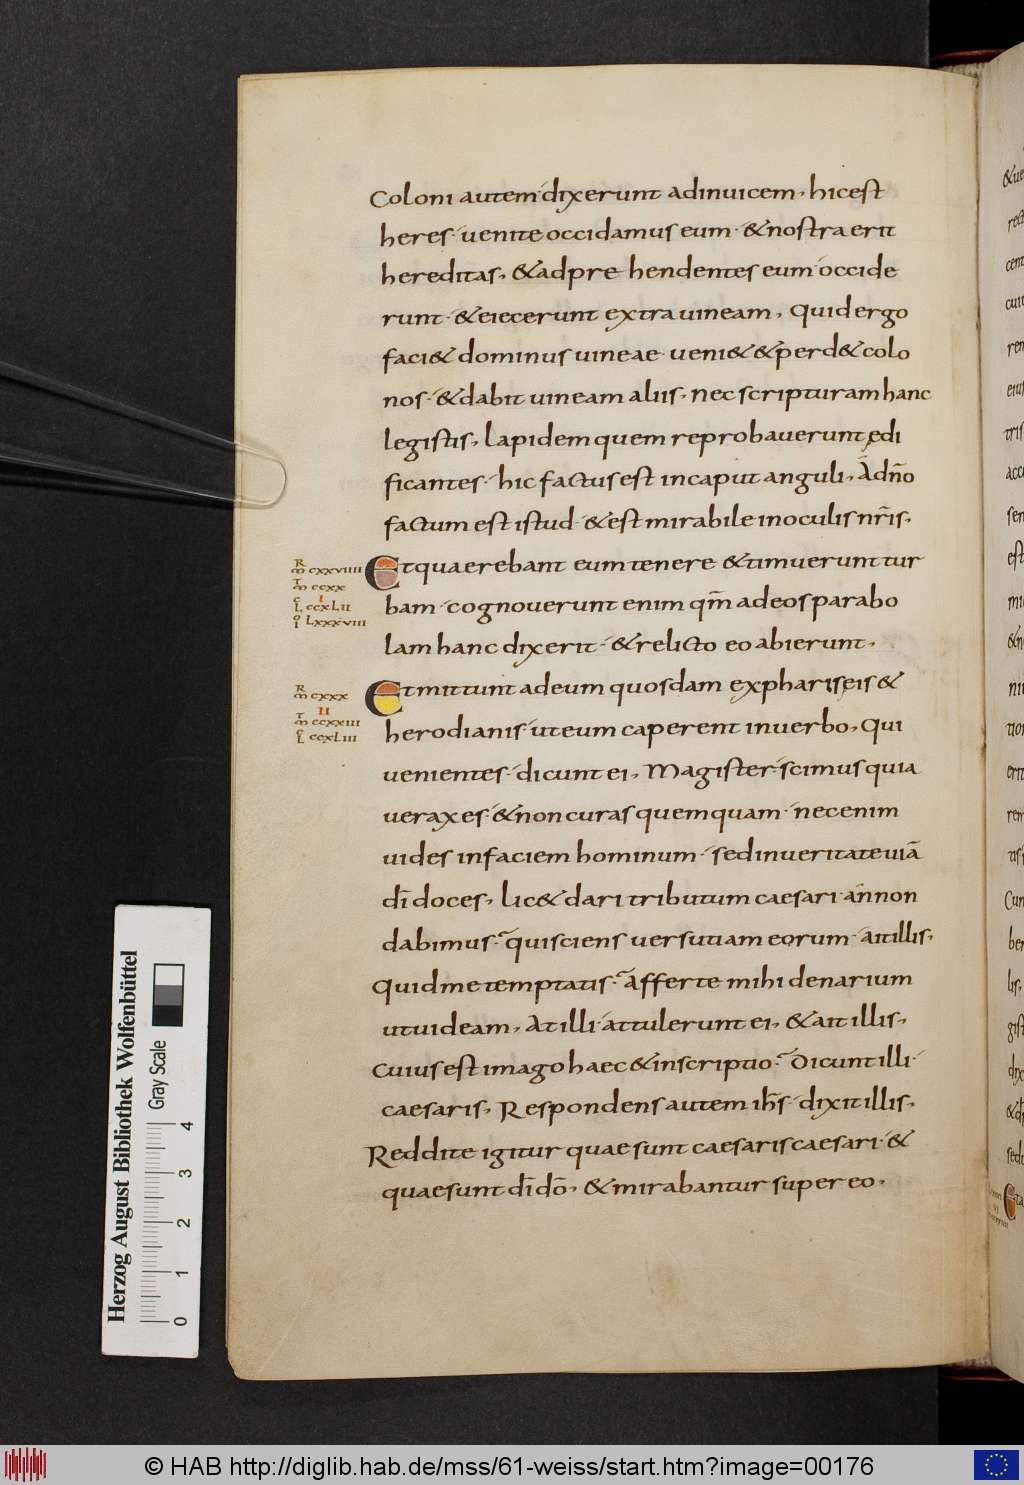 Coloni autem· dixerunt adinuicem, hicest
heres· uenite occidamus eum· &nostra erit
hereditas, &adpre hendentes eum· occide
runt· &eiecerunt extra uineam, Quid ergo
faci& dominus uineae· ueni& &perd& colo
nos· &dabit uineam aliis, nec scripturam hanc
legistis, lapidem quem reprobauerunt ędi
ficantes· hic factus est in caput anguli, Adn̄o
factum est istud· &est mirabile in oculis nr̄is,
Et quaerebant eum tenere &timuerunt tur
bam· cognouerunt enim qm̄ ad eos parabo
lam hanc dixerit· &relicto eo abierunt,
Et mittunt ad eum quosdam ex pharisęis &
herodianis· ut eum caperent in uerbo, Qui
uenientes· dicunt ei, Magister· scimus quia
uerax es· &non curas quemquam· nec enim
uides in faciem hominum· sed in ueritate uiā
dī doces, Lic& dari tributum caesari· an non
dabimus? qui sciens uersutiam eorum· ait illis,
Quid me temptatis? Afferte mihi denarium
ut uideam, At illi· attulerunt ei, &ait illis,
Cuius est imago haec &inscriptio? Dicunt illi·
caesaris, Respondens autem ih̄s· dixit illis,
Reddite igitur quae sunt caesaris caesari· &
quae sunt dī dō, &mirabantur super eo,
R
m cxxviiii
T
m ccxx
I
L ccxLii
L Lxxxviii
R
m cxxx
II
T
m ccxxiii
L ccxLiii
Herzog August Bibliothek Wolfenbüttel
Gray Scale
0 1 2 3 4
© HAB http://diglib.hab.de/mss/61-weiss/start.htm?image=00176